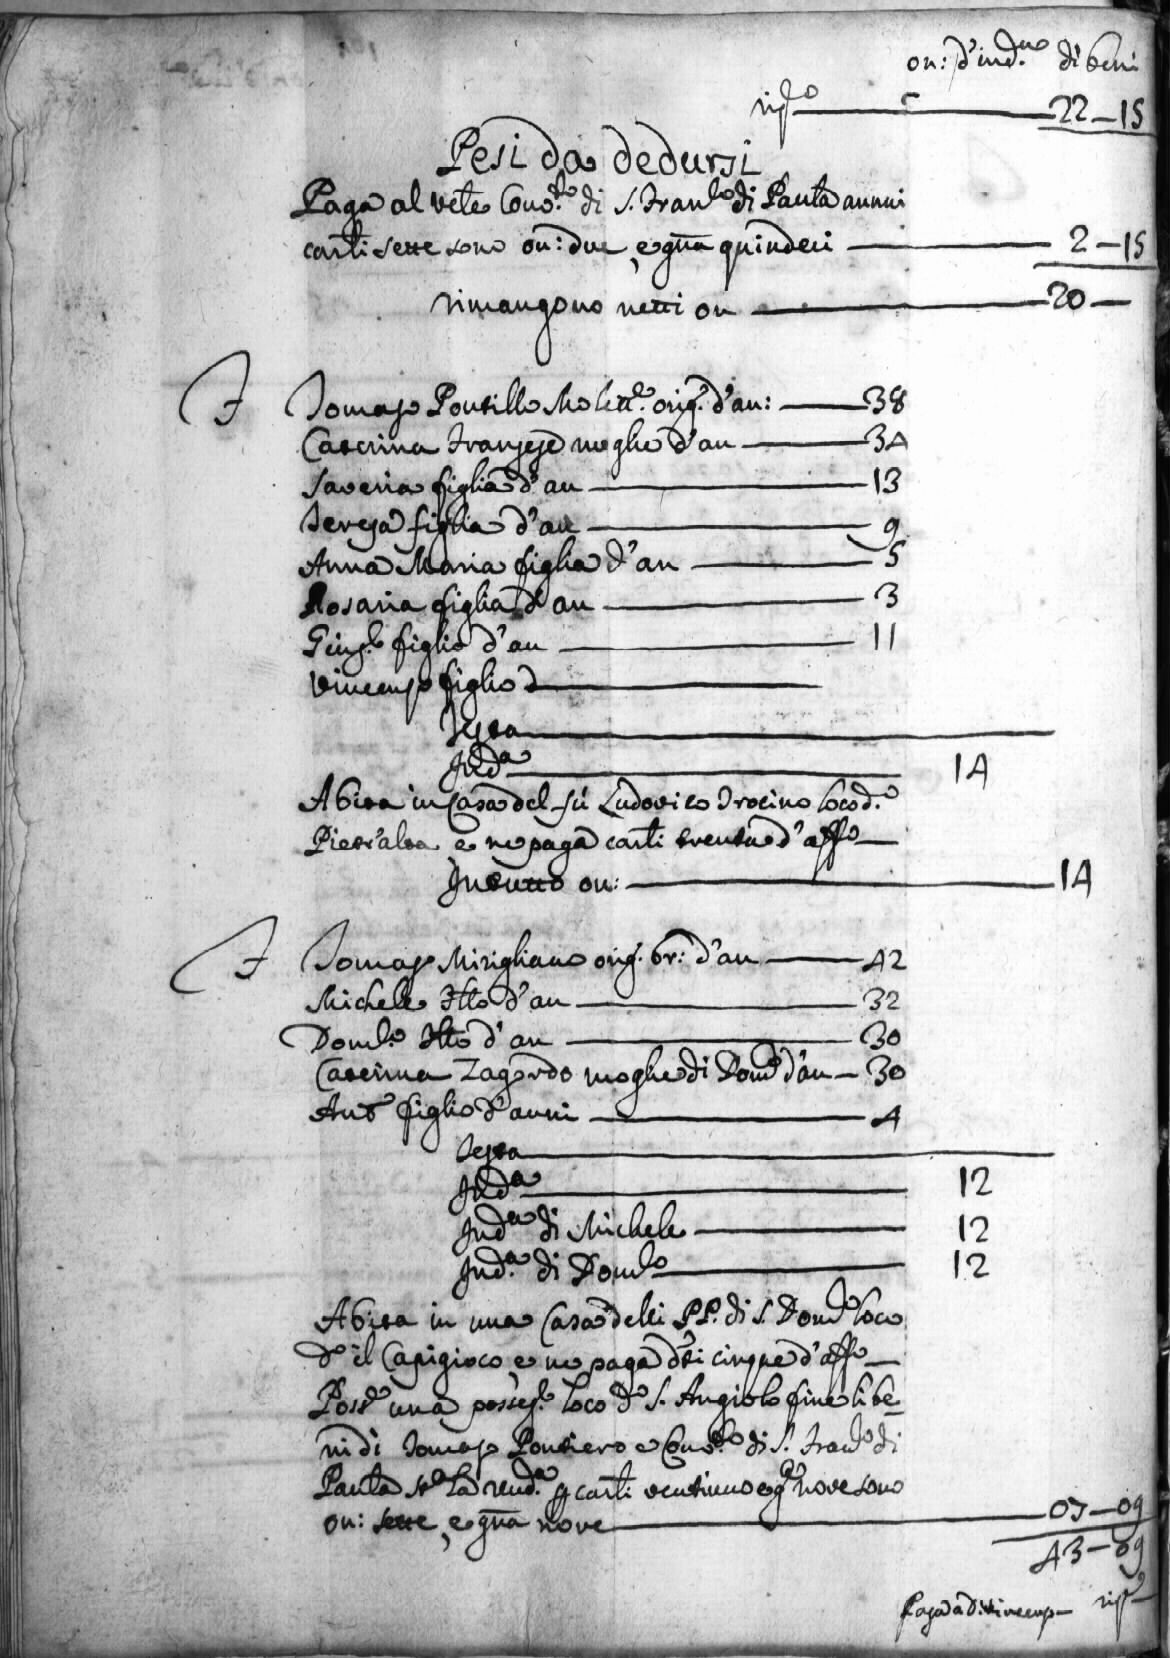 on: d'ind.ne di beni
rip.to 22-15
Pesi da dedursi
Paga al ven.le Conv.to di S. Fran.co di Paula annui
carlini sette sono on: due, e grana quindeci 2-15
rimangono netti on 20-
Tomaso Pontillo Molett.o orig. d'an: 38
Caterina Franzese moglie d'an 34
Saveria figlia d'an 13
Teresa figlia d'an 9
Anna Maria figlia d'an 5
Rosaria figlia d'an 3
Gius.e figlio d'an 11
Vincenzo figlio d
Testa
Ind.a 14
Abita in Casa del fù Ludovico Trocino loco d.o
Pietr'alta, e ne paga carlini trenta d'aff.o
In tutto on: 14
Tomaso Mirigliano orig. br: d'an 42
Michele f.llo d'an 32
Dom.co f.llo d'an 30
Caterina Zagordo moglie di Dom.co d'an 30
Ant.o figlio d'anni 4
Testa
Ind.a 12
Ind.a di Michele 12
Ind.a di Dom.co 12
Abita in una Casa delli PP. di S. Dom.co loco
d.o il Capigioco, e ne paga d.ti cinque d'aff.o
Poss.e una posses.e loco d.o S. Angiolo fine li be
ni di Tomaso Pontiero e Conv.to di S. Fran.co di
Paula st.a la rend.a p carlini ventiuno e g.a nove sono
on: sette, e grana nove 07-09
43-09
rip.to